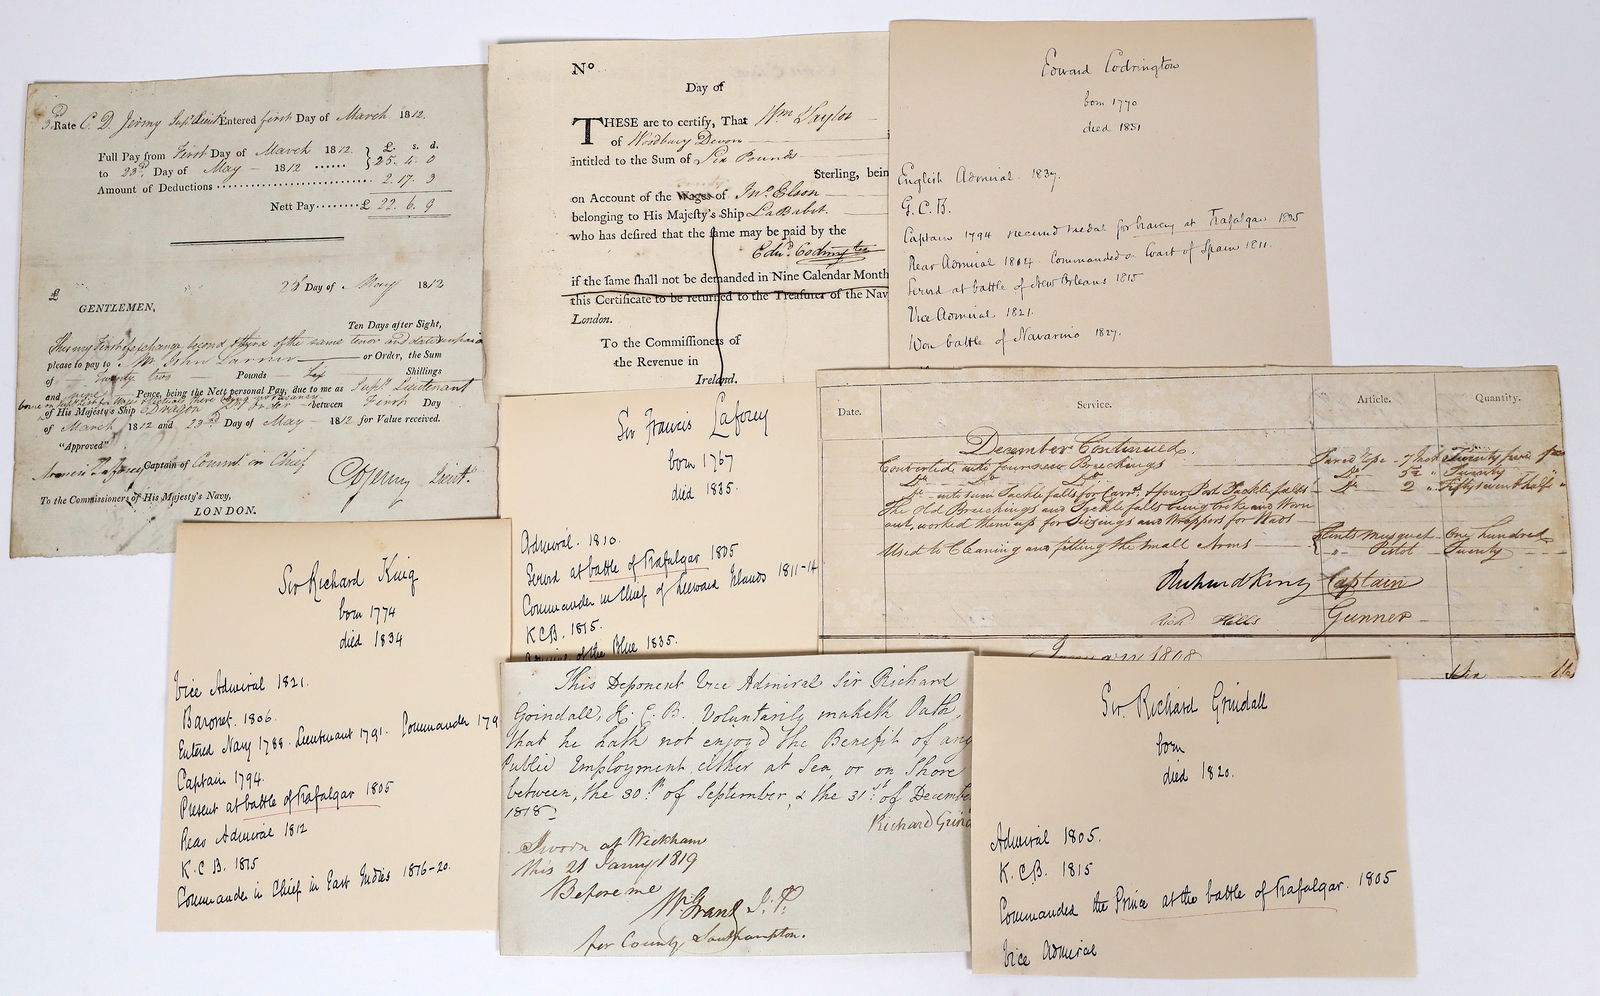 3d Rate C. D. Jermy Supy Lieut Entered first Day of March 1812.
Full Pay from First Day of March 1812. £. s. d.
to 23d. Day of May 1812 ...... } 25. 4. 0
Amount of Deductions ........ 2. 17. 3
Nett Pay ........ £ 22. 6. 9
23 Day of May 1812
£
GENTLEMEN,
Ten Days after Sight,
This my First of exchange second & third of the same tenor and date unpaid
please to pay to Mr John or Order, the Sum
of Twenty two Pounds Six Shillings
and nine Pence, being the Nett personal Pay, due to me as Supy. Lieutenant
of His Majesty's Ship Dragon between First Day
of March 1812 and 23d Day of May 1812 for Value received.
"Approved"
Captain of Comm in Chief
CDJermy Lieut.
To the Commissioners of His Majesty's Navy,
LONDON.
No
Day of
THESE are to certify, That Wm Taylor
of Woodbury Devon
intitled to the Sum of Six Pounds
Sterling, bein
on Account of the Wages of Jno. Elson
belonging to His Majesty's Ship
who has desired that the same may be paid by the
Edwd. Codrington
if the same shall not be demanded in Nine Calendar Month
this Certificate to be returned to the Treasurer of the Nav
London.
To the Commissioners of
the Revenue in
Ireland.
Edward Codrington
born 1770
died 1851
English Admiral. 1837.
G.C.B.
Captain 1794 received medal for bravery at Trafalgar 1805
Rear Admiral 1804. Commanded on Coast of Spain 1811.
Served at battle of New Orleans 1815
Vice Admiral 1821.
Won battle of Navarino 1827.
Sir Francis Laforey
born 1767
died 1835.
Admiral. 1810.
Served at battle of Trafalgar 1805
Commander in Chief of Leeward Islands 1811-14
K.C.B. 1815.
of the Blue 1835.
Date. Service. Article. Quantity.
December Continued
Converted into four new Breechings Twenty five
Do Do Do Do 5½ " Twenty "
Do into Tackle falls for & four Port Tackle falls Do 2 " Fifty seven & half "
The old Breechings and Tackle falls being broke and Worn
out, worked them up for Seizings and Wrappers for Wads
Used to Cleaning and fitting the small Arms Flints Musquet One hundred
" Pistol Twenty
Richard King Captain
Richd Hills Gunner
January 1808
Sir Richard King
born 1774
died 1834
Vice Admiral 1821.
Baronet. 1806.
Entered Navy 1788. Lieutenant 1791. Commander 179
Captain 1794.
Present at battle of Trafalgar 1805
Rear Admiral 1812
K.C.B. 1815
Commander in Chief in East Indies 1816-20.
This Deponent Vice Admiral Sir Richard
Grindall, K. C. B. Voluntarily maketh Oath,
that he hath not enjoy'd the Benefit of any
Public Employment either at Sea, or on Shore
between, the 30th of September, & the 31st of Decembe
1818
Richard Grind
Sworn at Wickham
this 21 Jany 1819
Before me
W Grant J. P.
for County Southampton.
Sir. Richard Grindall
born
died 1820.
Admiral 1805.
K.C.B. 1815
Commanded the Prince at the battle of Trafalgar. 1805
Vice Admiral